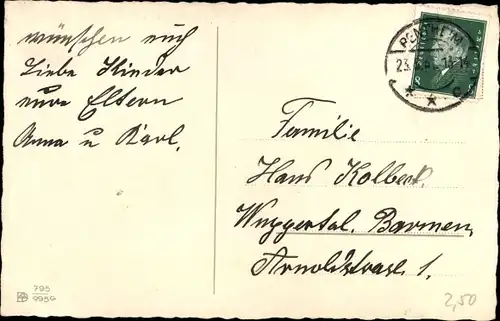 wünschen euch
Liebe Kinder
eure Eltern
Anna u Karl.
Familie
Hans Kolbeck.
Wuppertal. Barmen,
Arnoldstrase 1.
23.
8
795
9959
2,50